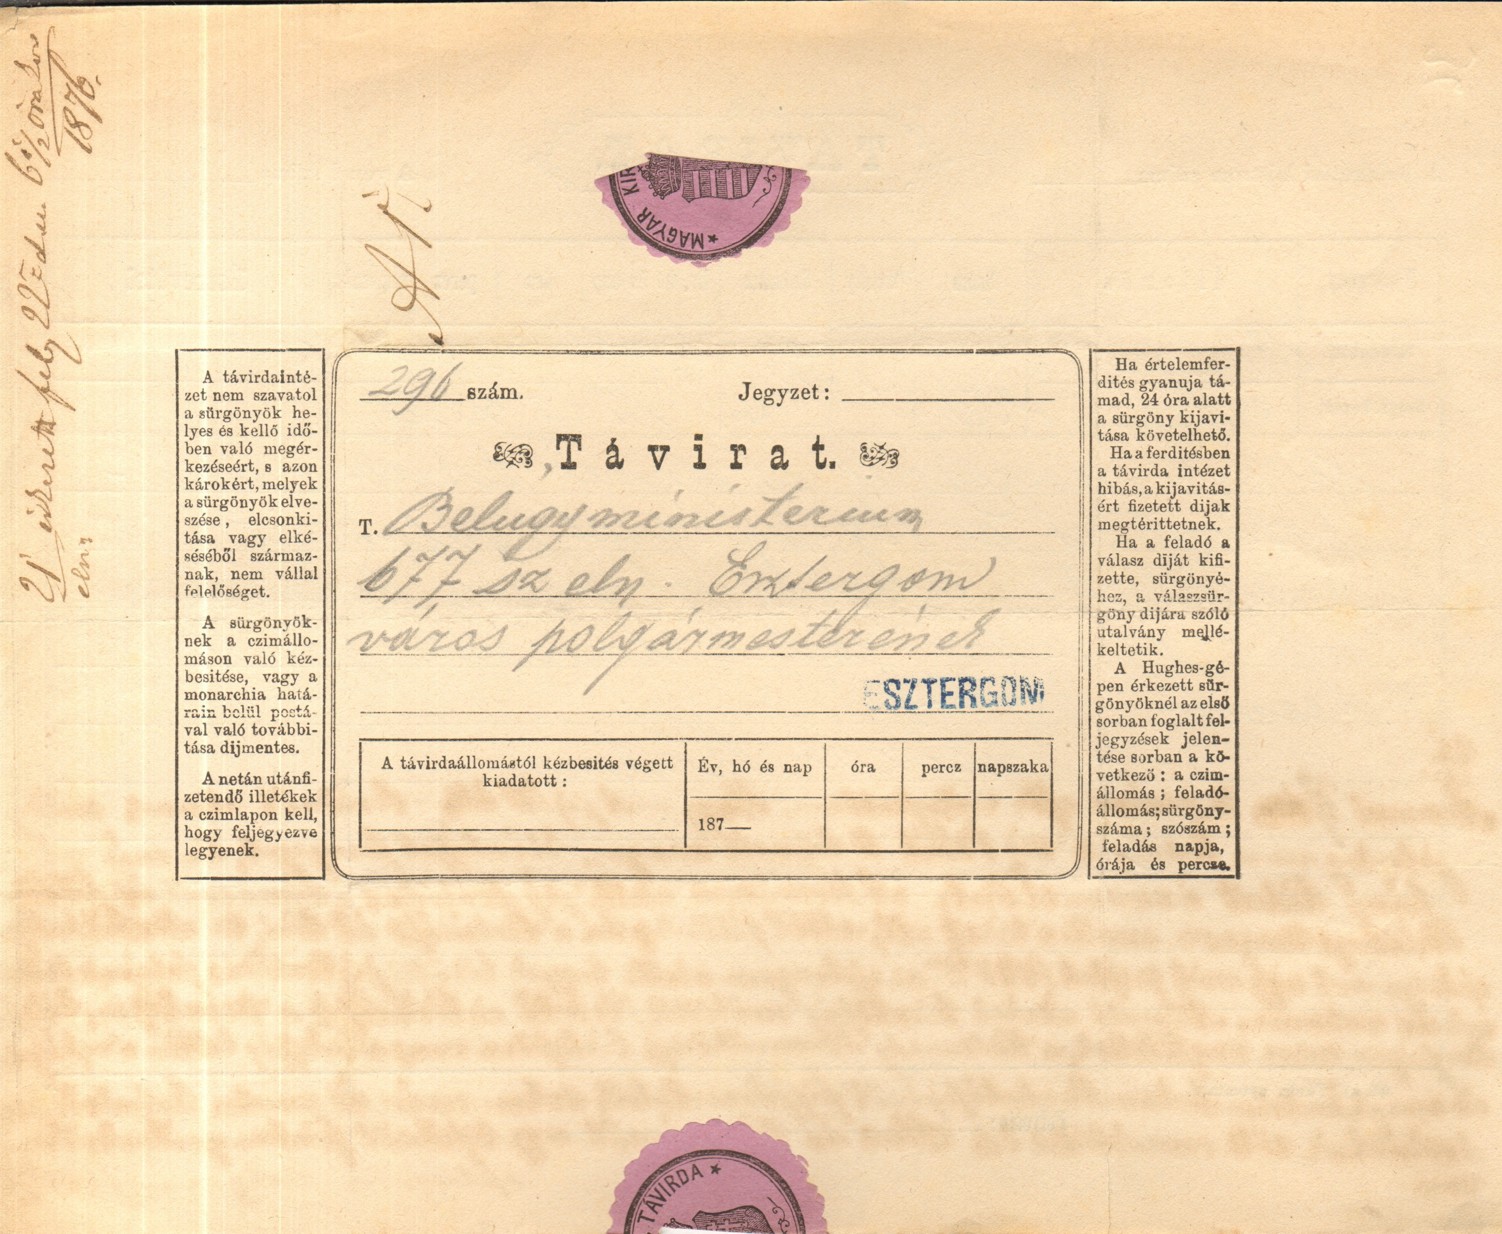 1876.
MAGYAR KIR
A távirdainté-
zet nem szavatol
a sürgönyök he-
lyes és kellő idő-
ben való megér-
kezéseért, s azon
károkért, melyek
a sürgönyök elve-
szése, elcsonki-
tása vagy elké-
séséből származ-
nak, nem vállal
felelőséget.
A sürgönyök-
nek a czimállo-
máson való kéz-
besitése, vagy a
monarchia hatá-
rain belül postá-
val való további-
tása dijmentes.
A netán utánfi-
zetendő illetékek
a czimlapon kell,
hogy feljegyezve
legyenek.
296 szám. Jegyzet:
Távirat.
T. Belugyministerium
677 sz eln. Esztergom
város polgármesterének
ESZTERGOM
A távirdaállomástól kézbesités végett
kiadatott:
Év, hó és nap óra percz napszaka
187
Ha értelemfer-
dités gyanuja tá-
mad, 24 óra alatt
a sürgöny kijavi-
tása követelhető.
Ha a ferditésben
a távirda intézet
hibás, a kijavitás-
ért fizetett dijak
megtérittetnek.
Ha a feladó a
válasz diját kifi-
zette, sürgönyé-
hez, a válaszsür-
göny dijára szóló
utalvány mellé-
keltetik.
A Hughes-gé-
pen érkezett sür-
gönyöknél az első
sorban foglalt fel-
jegyzések jelen-
tése sorban a kö-
vetkező: a czim-
állomás; feladó-
állomás; sürgöny-
száma; szószám;
feladás napja,
órája és percze.
TÁVIRDA